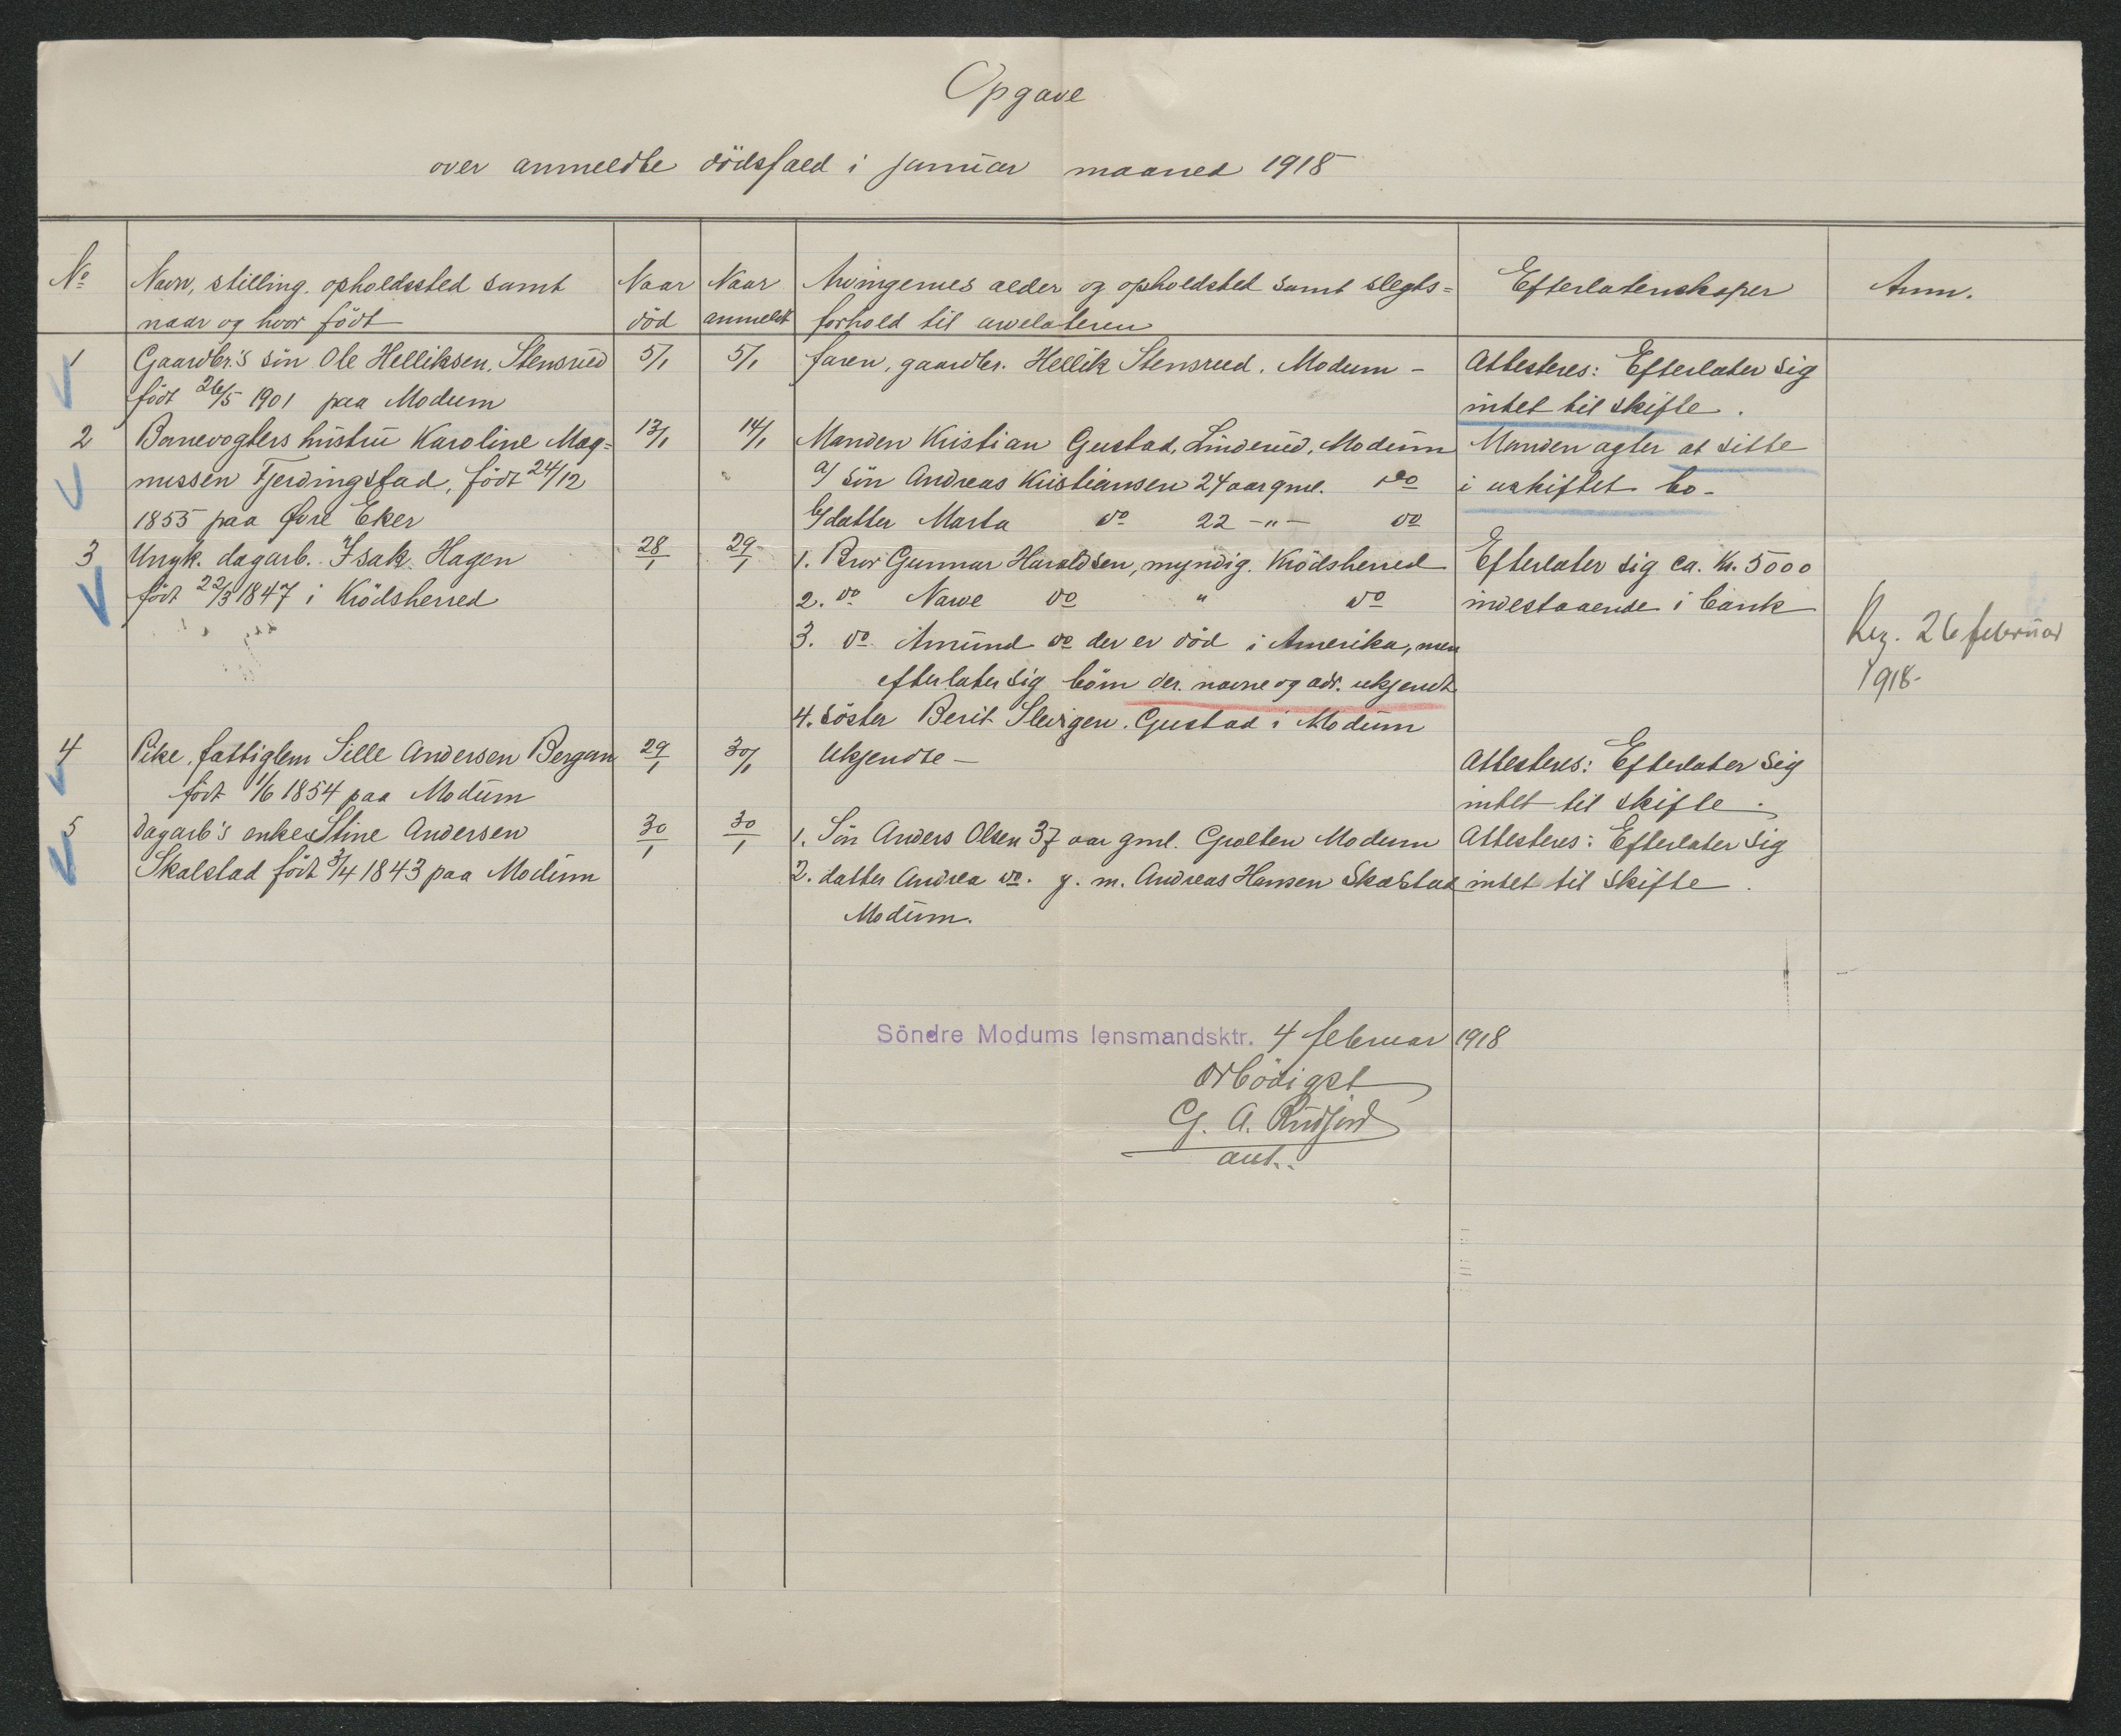 Opgave
over anmeldte dödsfald i januar maaned 1918
No Navn, stilling, opholdssted samt naar og hvor födt
Naar död
Naar anmeldt
Arvingernes alder og opholdsted samt slegts=
forhold til arvelateren
Efterlatenskaper
Anm.
1 Gaardbr.'s sön Ole Helliksen Stensrud 5/1 5/1 faren, gaardbr. Hellik Stensrud, Modum - Attesteres: Efterlater sig
födt 26/5 1901 paa Modum intet til skifte.
2 Banevogters hustru Karoline Mag= 13/1 14/1 Manden Kristian Gustad, Linderud, Modum Manden agter at sitte
nussen Fjerdingstad, födt 24/12 a/ sön Andreas Kristiansen 24 aar gml. do i uskiftet bo -
1855 paa Øvre Eker b/ datter Marta do 22 -"- do
3 Ungk. dagarb. Isak Hagen 28/1 29/1 1. Bror Gunnar Haraldsen, myndig. Krödsherred Efterlater sig ca. Kr. 5000
födt 22/3 1847 i Krödsherred 2. do Narve do " do indestaaende i bank
3. do Amund do der er död i Amerika, men
efterlater sig börn der. navne og adr. ukjendt
4. söster Berit Slevigen, Gustad i Modum
Reg. 26 februar
1918-
4 Pike, fattiglem Sille Andersen Bergan 29/1 30/1 Ukjendte - Attesteres: Efterlater sig
födt 1/6 1854 paa Modum intet til skifte.
5 Dagarb's enke Stine Andersen 30/1 30/1 1. Sön Anders Olsen 37 aar gml. Modum Attesteres: Efterlater sig
Skalstad födt 3/4 1843 paa Modum 2. datter Andrea do. g. m. Andreas Hansen Skalstad intet til skifte.
Modum.
Söndre Modums lensmandsktr. 4 februar 1918
Ærbödigst
G. A. Rudfjord
aut.